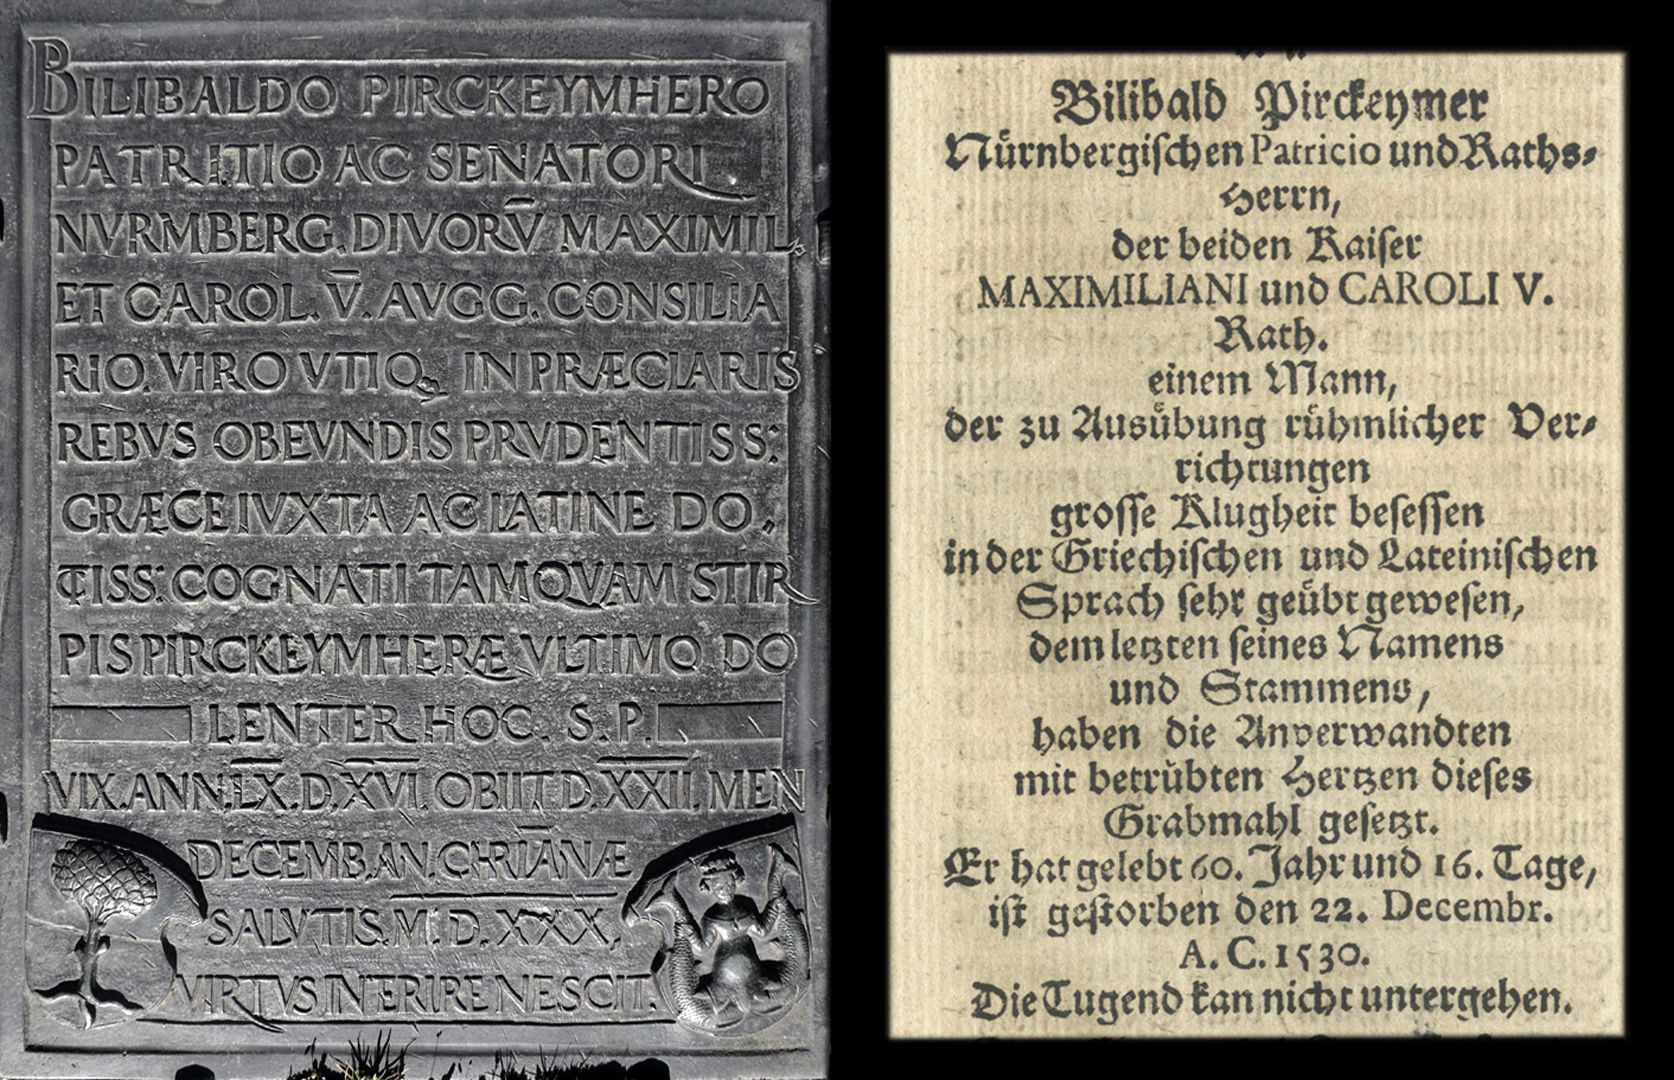 BILIBALDO PIRCKEYMHERO
PATRITIO AC SENATORI
NVRMBERG. DIVORV̄ MAXIMIL.
ET CAROL. V̄. AVGG. CONSILIA
RIO. VIRO VTIQ. IN PRÆCLARIS
REBVS OBEVNDIS PRVDENTISS:
GRÆCE IVXTA AC LATINE DO,,
CTISS: COGNATI TAMQVAM STIR
PIS PIRCKEYMHERÆ VLTIMO DO
LENTER HOC. S. P.
VIX. ANN. L̅X̅. D. X̅V̅I̅. OBIIT. D. X̅X̅I̅I̅. MEN
DECEMB. AN. CHRIĀNÆ
SALVTIS. M. D. XXX.
VIRTVS INTERIRE NESCIT.
Bilibald Pirckeymer
Nůrnbergiſchen Patricio und Raths⸗
Herrn,
der beiden Kaiſer
MAXIMILIANI und CAROLI V.
Rath.
einem Mann,
der zu Ausuͤbung ruͤhmlicher Ver⸗
richtungen
groſſe Klugheit beſeſſen
in der Griechiſchen und Lateiniſchen
Sprach ſehr geuͤbt geweſen,
dem letzten ſeines Namens
und Stammens,
haben die Anverwandten
mit betruͤbten Hertzen dieſes
Grabmahl geſetzt.
Er hat gelebt 60. Jahr und 16. Tage,
iſt geſtorben den 22. Decembr.
A. C. 1530.
Die Tugend kan nicht untergehen.